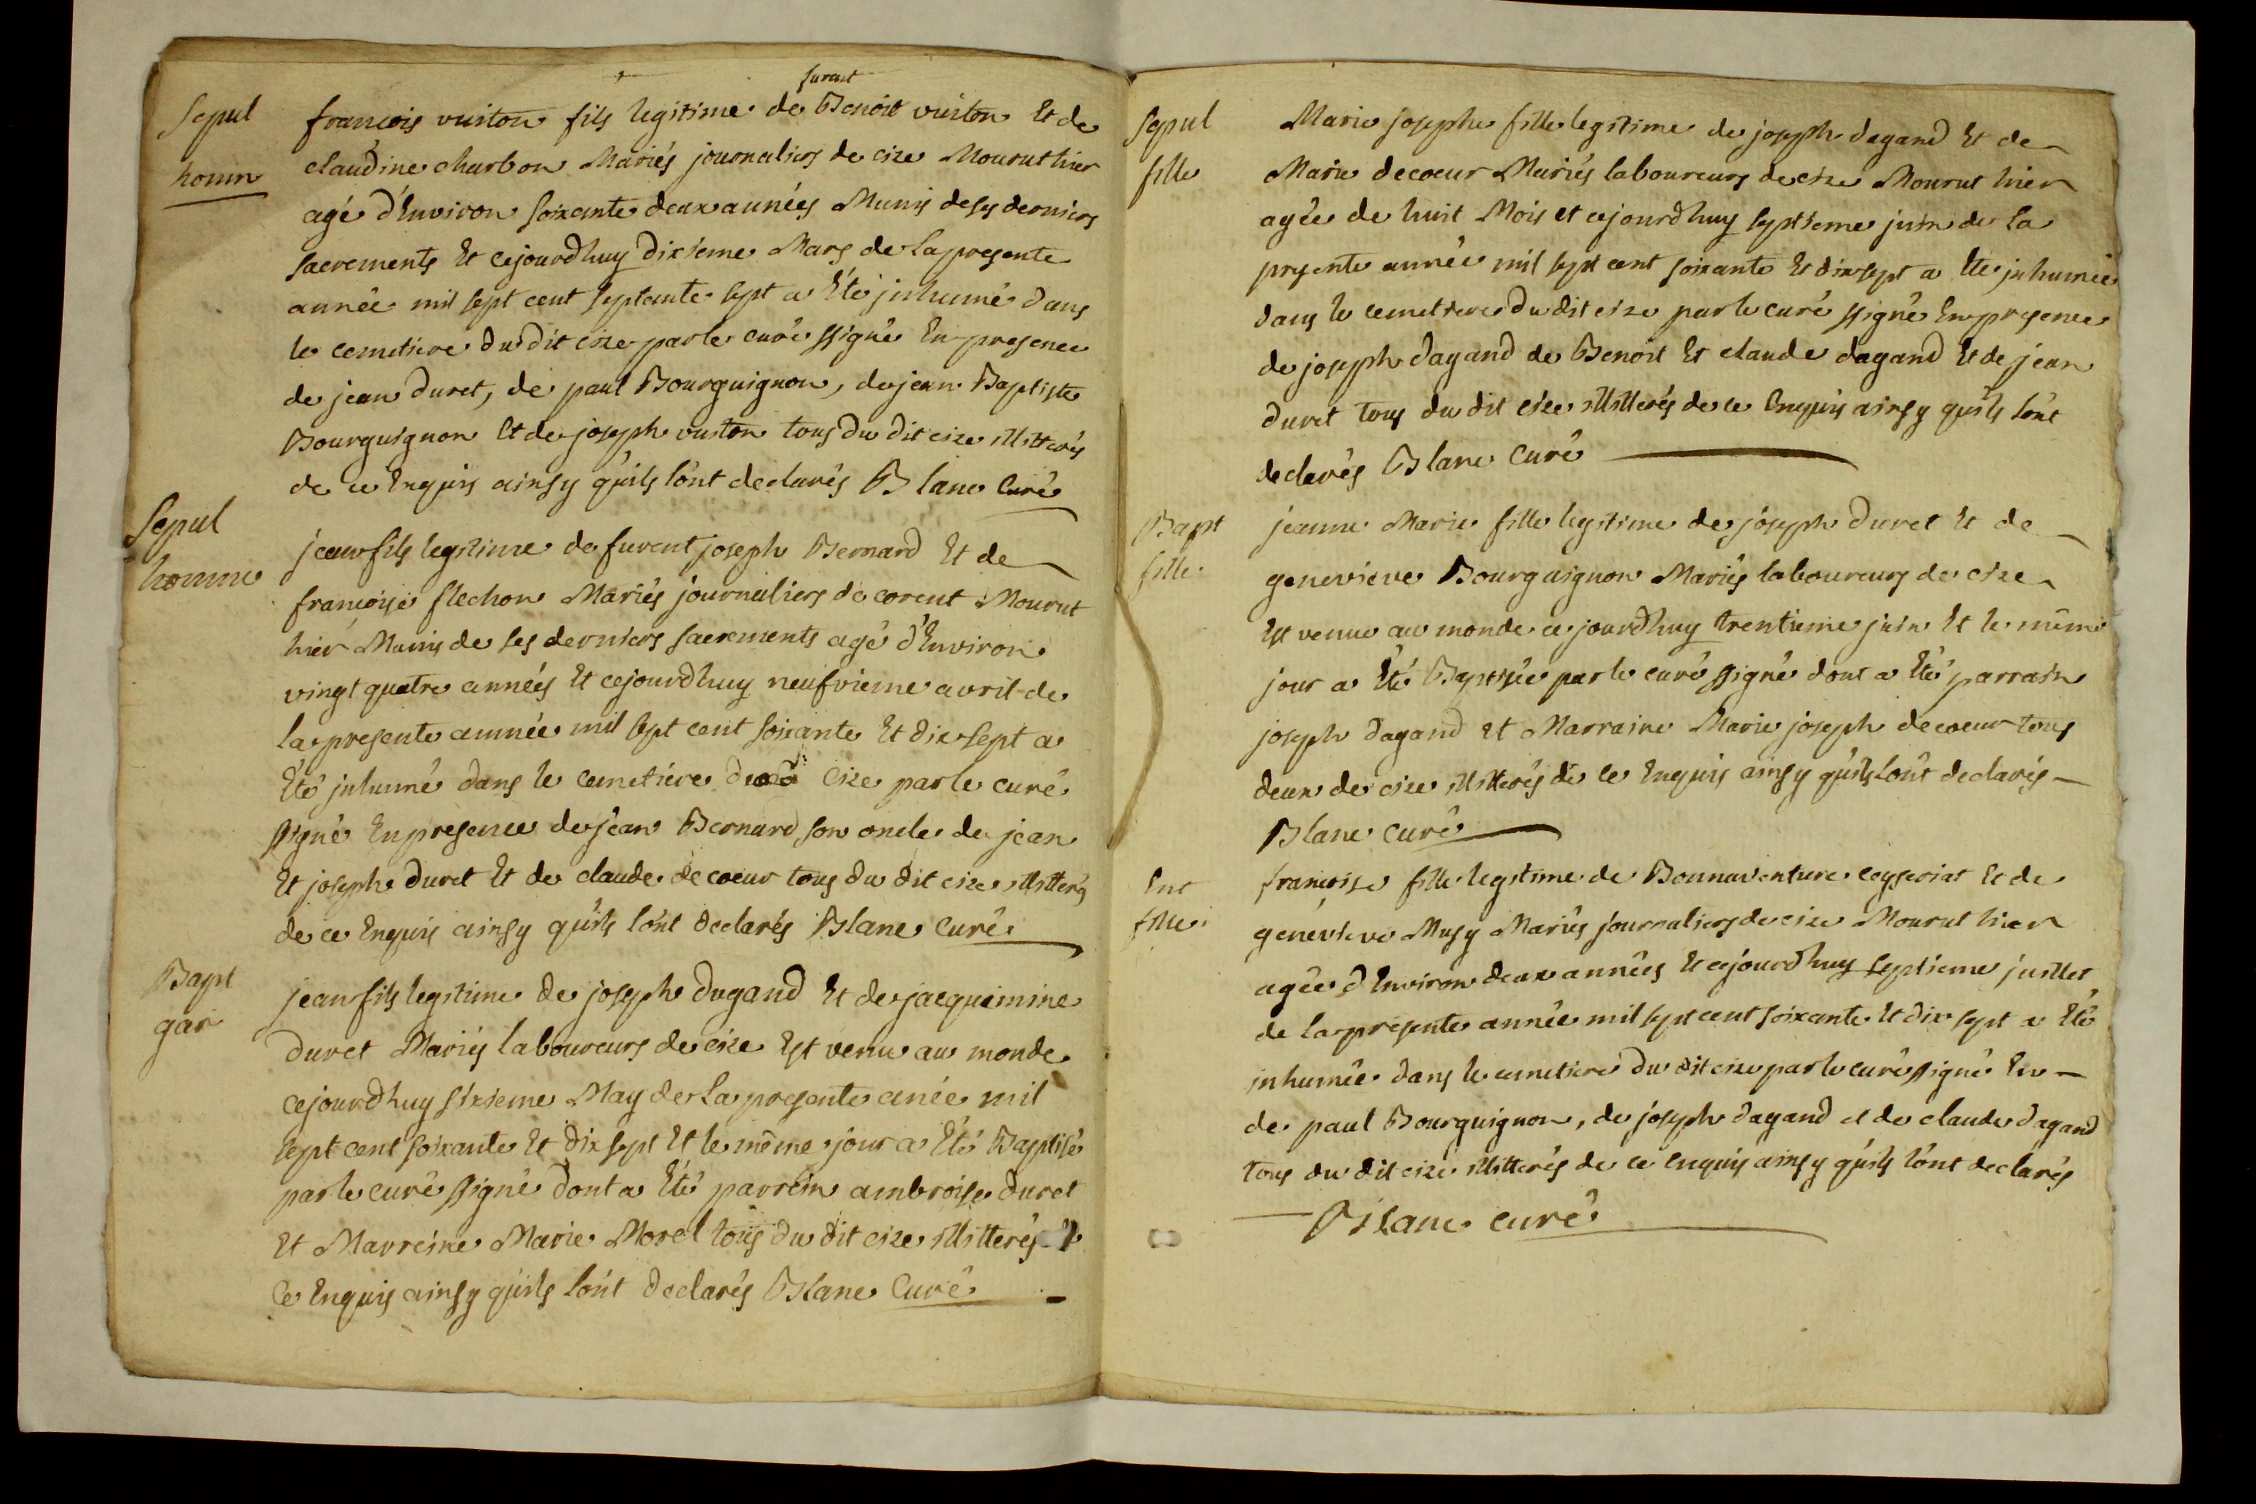 Sepul
homm
furent
francois vuiton fils legitime de Benoit vuiton Et de
claudine charbon Mariés journaliers de cize Mourut hier
agé d'Environ soixante deux années Munis de ses derniers
sacrements Et cejourdhuy dixieme Mars de la presente
année mil sept cent septante sept a Eté inhumé dans
le cemetiere du dit cize par le curé ssigné En presence
de jean duret, de paul Bourguignon, de jean Baptiste
Bourguignon Et de joseph vuiton tous du dit cize illitterés
de ce Enquis ainsy quils lont declarés Blanc Curé
Sepul
homme
jean fils legitime de furent joseph Bernard Et de
francoise flechon Mariés journaliers de corent Mourut
hier Munis de ses derniers sacrements agé d'Environ
vingt quatre années Et cejourdhuy neufvieme avril de
la presente année mil sept cent soixante Et dix sept a
Eté inhumé dans le cemetiere cize par le curé
ssigné En presence de jean Bernard son oncle de jean
Et joseph duret Et de claude decoeur tous du dit cize illitterés
de ce Enquis ainsy quils lont declarés Blanc Curé
Bapt
gar
jean fils legitime de joseph dagand Et de jacquemine
duret Mariés laboureurs de cize Est venu au monde
cejourdhuy sixieme May de la presente anée mil
sept cent soixante Et dix sept Et le même jour a Eté Baptisé
par le curé ssigné dont a Eté parrein ambroise duret
Et Marreine Marie Morel tous du dit cize illitterés
ce Enquis ainsy quils lont declarés Blanc Curé
Sepul
fille
Marie josephe fille legitime de joseph dagand Et de
Marie decoeur Mariés laboureurs de cize Mourut hier
agée de huit Mois et cejourdhuy septieme juin de la
presente année mil sept cent soixante Et dix sept a Eté inhumée
dans le cemetiere du dit cize par le curé ssigné En presence
de joseph dagand de Benoit Et claude dagand Et de jean
duret tous du dit cize illitterés de ce Enquis ainsy quils lont
declarés Blanc Curé
Bapt
fille
jeanne Marie fille legitime de joseph duret Et de
genevieve Bourguignon Mariés laboureurs de cize
Est venue au monde ce jourdhuy trentieme juin Et le même
jour a Eté Baptisée par le curé ssigné dont a Eté parrain
joseph dagand et Marraine Marie joseph decoeur tous
deux de cize illitterés de ce Enquis ainsy quils lont declarés
Blanc Curé
Ent
fille
francoise fille legitime de Bonnaventure ceyseriat Et de
genevieve Musy Mariés journaliers de cize Mourut hier
agée d'Environ deux années Et cejourdhuy septieme juillet
de la presente année mil sept cent soixante Et dix sept a Eté
inhumée dans le cemetiere du dit cize par le curé ssigné En
de paul Bourguignon, de joseph dagand et de claude dagand
tous du dit cize illitterés de ce Enquis ainsy quils lont declarés
Blanc curé